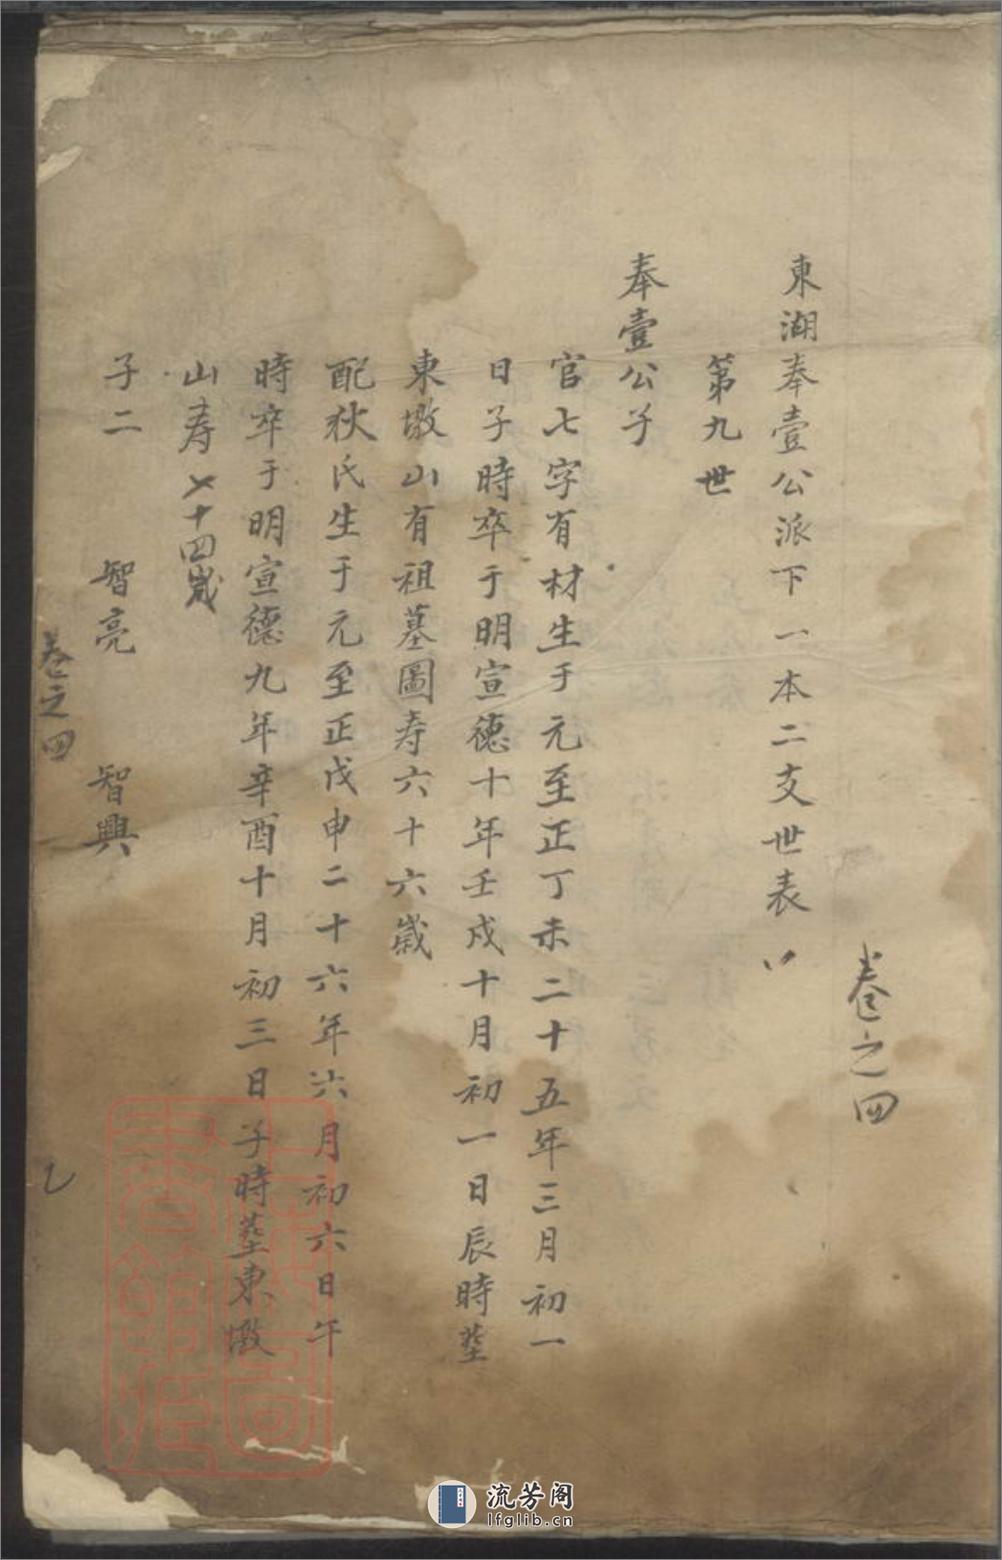 卷之四
東湖奉壹公派下一本二支世表
第九世
奉壹公子
官七字有材生于元至正丁未二十五年三月初一
日子時卒于明宣德十年壬戌十月初一日辰時塟
東墩山有祖墓圖寿六十六歲
配狄氏生于元至正戊申二十六年六月初六日午
時卒于明宣德九年辛酉十月初三日子時塟東墩
山寿七十四歲
子二 智亮 智興
卷之四
流芳阁
lfglib.cn